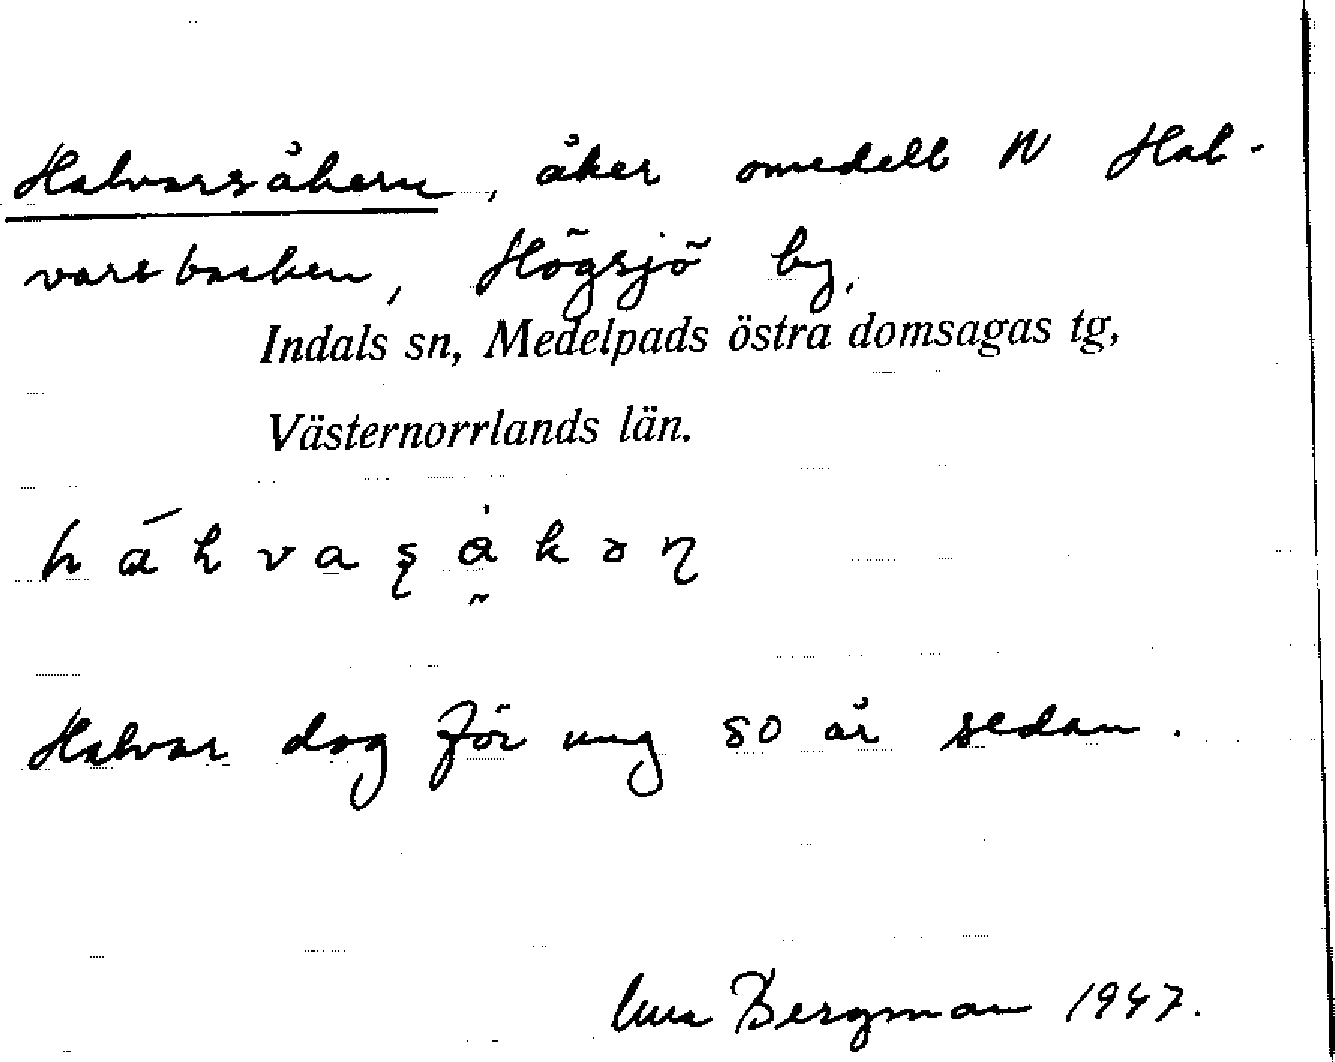 Halvarsåkern, åker omedelb N Hal-
varsbacken, Högsjö by.
Indals sn, Medelpads östra domsagas tg,
Västernorrlands län.
Halvar dog för ung 80 år sedan.
Bergman 1947.